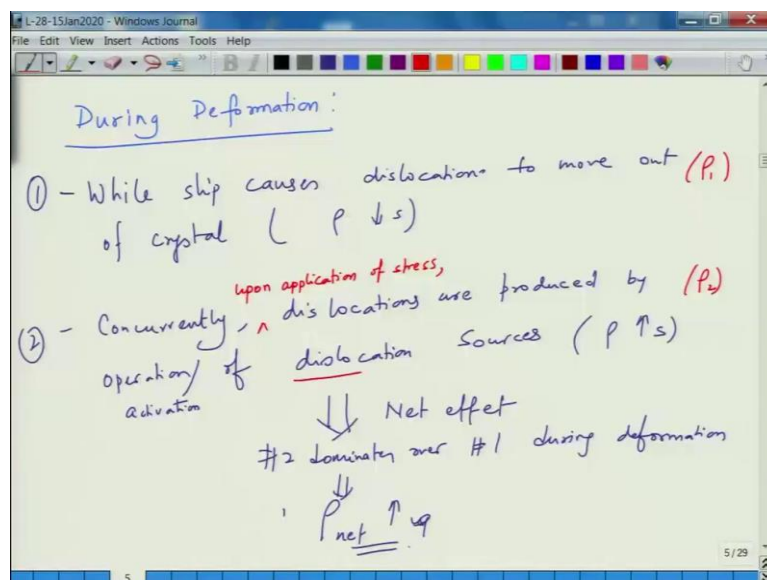 L-28-15Jan2020 - Windows Journal
File Edit View Insert Actions Tools Help
During Deformation:
① - While slip causes dislocations to move out (ρ₁)
of crystal ( ρ ↓s)
upon application of stress,
② - Concurrently, ^ dislocations are produced by (ρ₂)
operation/ of dislocation sources (ρ ↑s)
activation
⇓ Net effet
#2 dominates over #1 during deformation
⇓
ρnet ↑
5/29
5